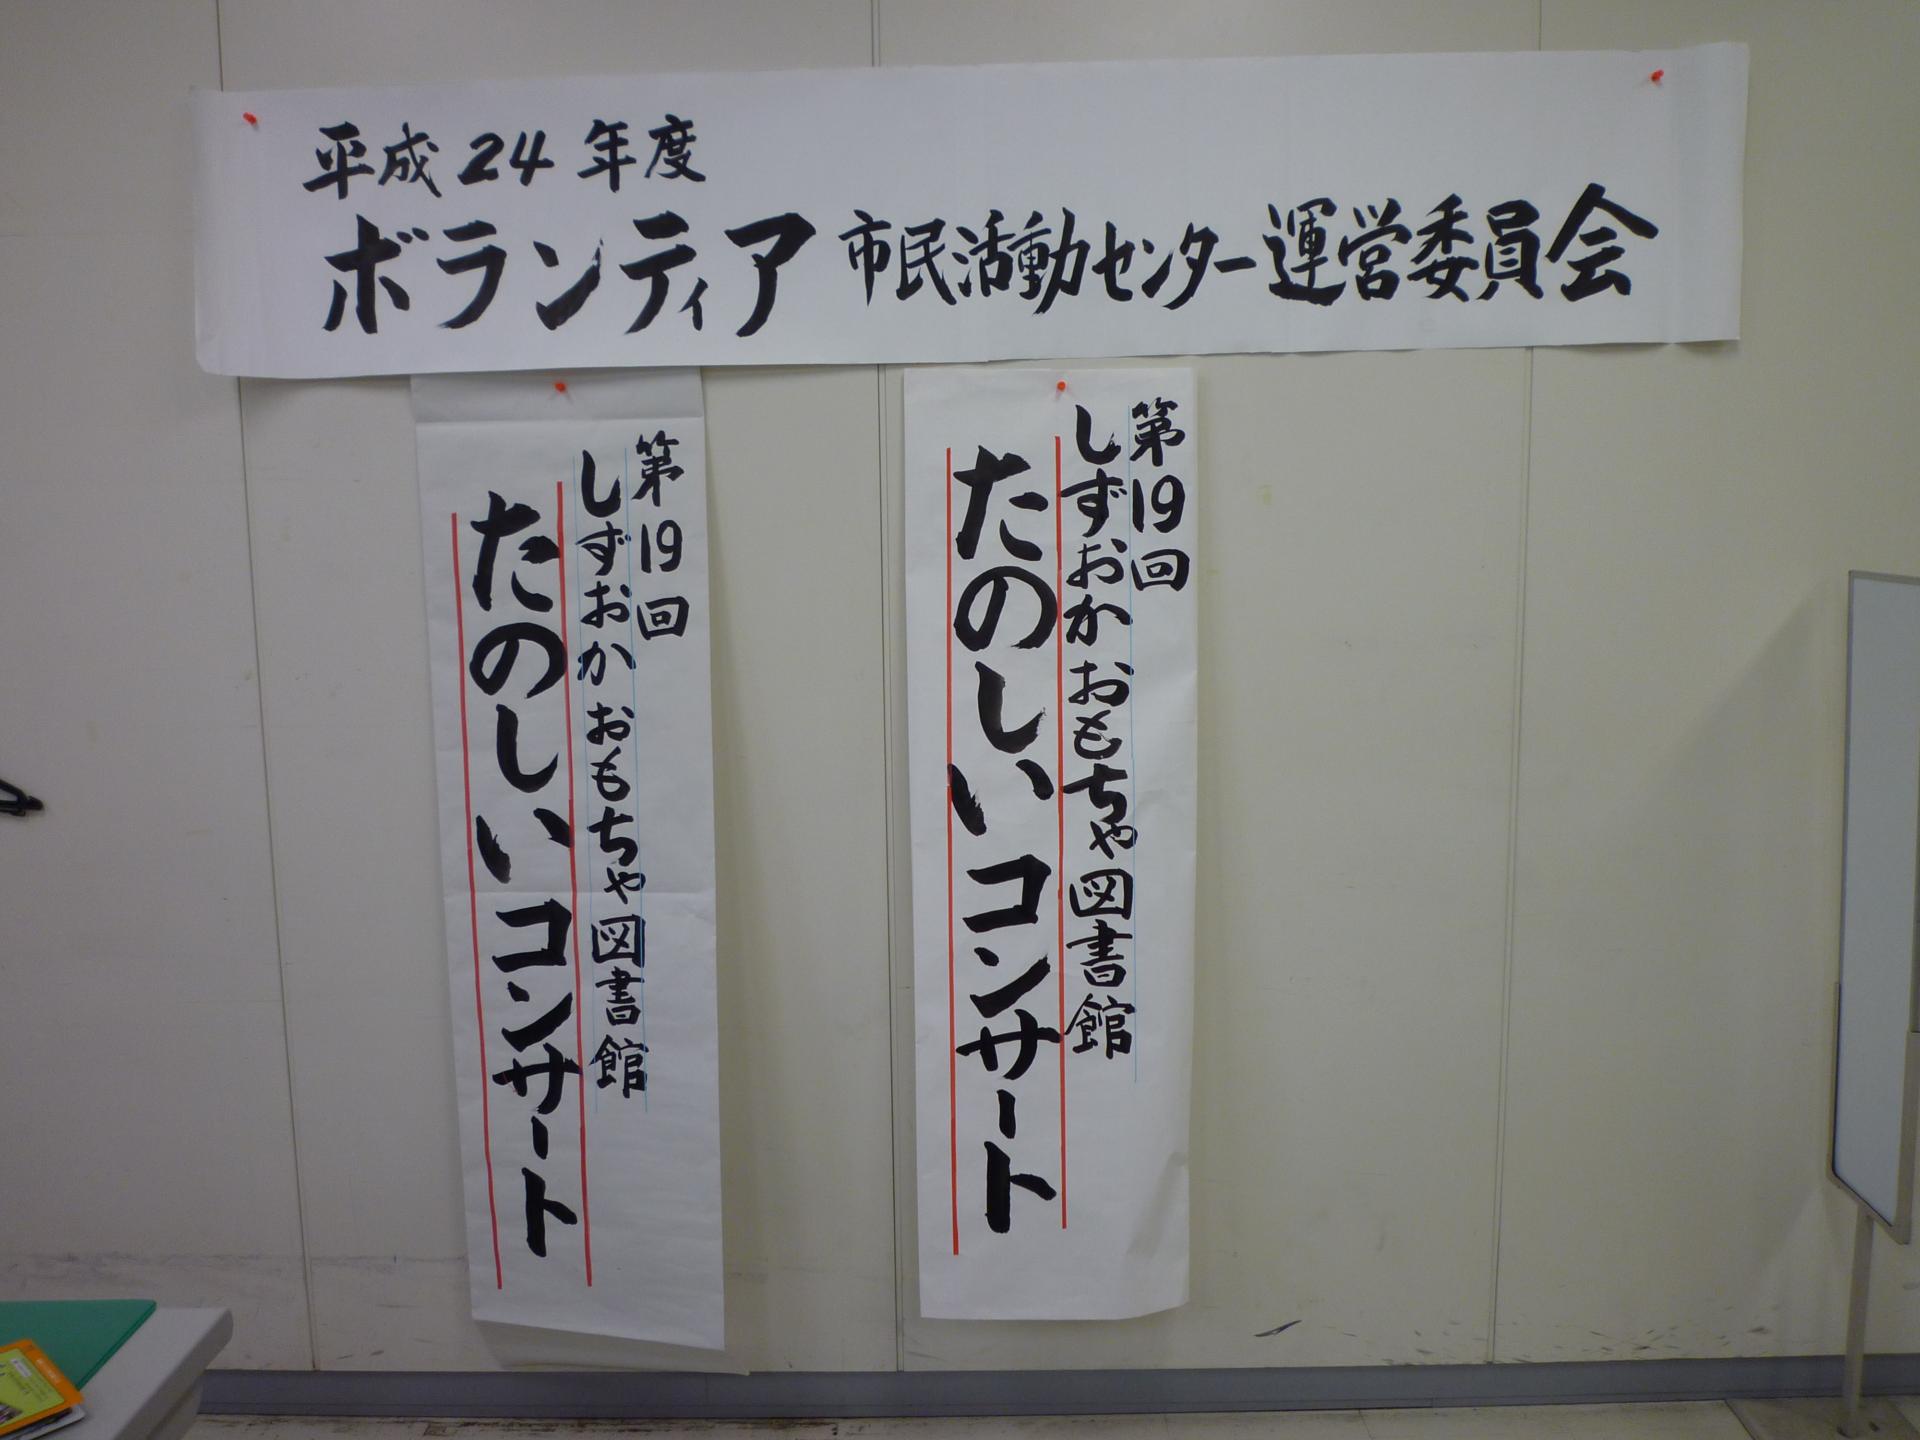 平成24年度
ボランティア市民活動センター運営委員会
第19回
しずおかおもちゃ図書館
たのしいコンサート
第19回
しずおかおもちゃ図書館
たのしいコンサート